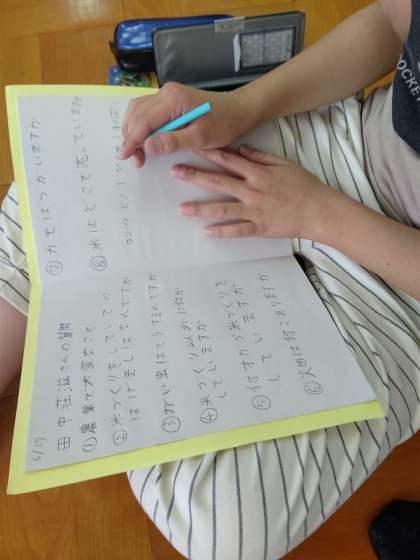 5/17
田中荘滋さんの質問
① 農業で大変なこと
② 米づくりをしていての
はげましはなんですか
③ がい虫はどうするんですか
④ 米づくり以外に何か
していますか
⑤ 何才から米づくりを
していますか
⑥ 水田は何こありますか
⑦ カモはつかいますか
⑧ 米はどこで売っていますか